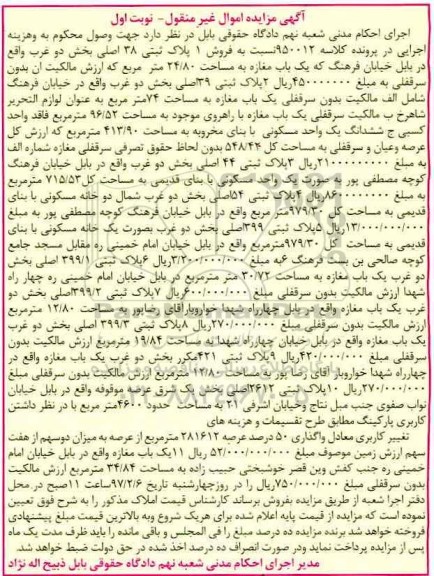 آگهی مزایده اموال غیر منقول- نوبت اول
اجرای احکام مدنی شعبه نهم دادگاه حقوقی بابل در نظر دارد جهت وصول محکوم به وهزینه
اجرایی در پرونده کلاسه ۹۵۰۰۱۲نسبت به فروش ۱ پلاک ثبتی ۳۸ اصلی بخش دو غرب واقع
در بابل خیابان فرهنگ که یک باب مغازه به مساحت ۲۴/۸۰ متر مربع که ارزش مالکیت ان بدون
سرقفلی به مبلغ ۴۵۰۰۰۰۰۰۰ریال ۲پلاک ثبتی ۳۹اصلی بخش دو غرب واقع در خیابان فرهنگ
شامل الف مالکیت بدون سرقفلی یک باب مغازه به مساحت ۷۴متر مربع به عنوان لوازم التحریر
شاهرخ ب مالکیت سرقفلی یک باب مغازه با راهروی موجود به مساحت ۹۶/۵۲ مترمربع فاقد واحد
کسبی ج ششدانگ یک واحد مسکونی با بنای مخروبه به مساحت ۴۱۳/۹۰ مترمربع که ارزش کل
عرصه وعیان و سرقفلی به مساحت کل ۵۴۸/۴۴ بدون لحاظ حقوق تصرفی سرقفلی مغازه شماره الف
به مبلغ ریال ۳پلاک ثبتی ۴۴ اصلی بخش دو غرب واقع در بابل خیابان فرهنگ
کوچه مصطفی پور به صورت یک واحد مسکونی با بنای قدیمی به مساحت کل۷۱۵/۵۳مترمربع
به مبلغ ریال ۴پلاک ثبتی ۵۴اصلی بخش دو غرب شمال دو خانه مسکونی با بنای
قدیمی به مساحت کل ۹۷۹/۳۰متر مربع واقع در بابل خیابان فرهنگ کوچه مصطفی پور به مبلغ
۱۳/۰۰۰/۰۰۰/۰۰۰ریال ۵پلاک ثبتی ۳۹۹اصلی بخش دو غرب بصورت یک خانه مسکونی با بنای
قدیمی به مساحت کل ۹۷۹/۳۰مترمربع واقع در بابل خیابان امام خمینی ره مقابل مسجد جامع
کوچه صالحی بن بست فرهنگ ۶به مبلغ ۳/۲۰۰/۰۰۰/۰۰۰ریال ۶پلاک ثبتی ۳۹۹/۱ اصلی بخش
دو غرب یک باب مغازه به مساحت ۳۰/۷۲ متر مترمربع در بابل خیابان امام خمینی ره چهار راه
شهدا ارزش مالکیت بدون سرقفلی مبلغ ۶۰۰/۰۰۰/۰۰۰ریال ۷پلاک ثبتی ۳۹۹/۲اصلی بخش دو
غرب یک باب مغازه واقع در بابل چهارراه شهدا خواروبارآقای رضاپور به مساحت ۱۲/۸۰ مترمربع
ارزش مالکیت بدون سرقفلی مبلغ ۲۷۰/۰۰۰/۰۰۰ ریال ۸پلاک ثبتی ۳۹۹/۳ اصلی بخش دو غرب
یک باب مغازه واقع در بابل خیابان چهارراه شهدا به مساحت ۱۹/۸۴ مترمربع ارزش مالکیت بدون
سرقفلی مبلغ ۴۲۰/۰۰۰/۰۰۰ریال ۹پلاک ثبتی ۴۲۱مکرر بخش دو غرب یک باب مغازه واقع در
چهارراه شهدا خواروبار آقای رضا پوربه مساحت ۱۲/۸۰ مترمربع ارزش مالکیت بدون سرقفلی مبلغ
۲۷۰/۰۰۰/۰۰۰ریال ۱۰پلاک ثبتی ۲۶۱۲اصلی بخش یک شرق عرصه موقوفه واقع در بابل خیابان
نواب صفوی جنب مبل نتاج وخیابان اشرفی ۲۱ به مساحت حدود ۴۶۰۰متر مربع با در نظر داشتن
کاربری پارکینگ مطابق طرح تقسیمات و هزینه های
تغییر کاربری معادل واگذاری ۵۰ درصد عرصه ۲۸۱۶۱۲ مترمربع از عرصه به میزان دوسهم از هفت
سهم ارزش زمین موصوف مبلغ ۵۲/۰۰۰/۰۰۰/۰۰۰ ریال ۱۱یک باب مغازه واقع در بابل خیابان امام
خمینی ره جنب کفش وین قصر خوشبختی حبیب زاده به مساحت ۳۴/۸۴ مترمربع ارزش مالکیت
بدون سرقفلی مبلغ ۷۵۰/۰۰۰/۰۰۰ریال را در روزچهارشنبه تاریخ ۹۷/۲/۶ساعت ۱۱صبح در محل
دفتر اجرا شعبه از طریق مزایده بفروش برساند کارشناس قیمت املاک مذکور را به شرح فوق تعیین
نموده است که مزایده از قیمت پایه اعلام شده برای هریک شروع وبه بالاترین قیمت مبلغ پیشنهادی
فروخته خواهد شد برنده مزایده ده درصد مبلغ را فی المجلس و باقی مانده را باید ظرف مدت یک ماه
پس از مزایده پرداخت نماید ودر صورت انصراف ده درصد اخذ شده در حق دولت ضبط خواهد شد.
مدیر اجرای احکام مدنی شعبه نهم دادگاه حقوقی بابل ذبیح اله نژاد